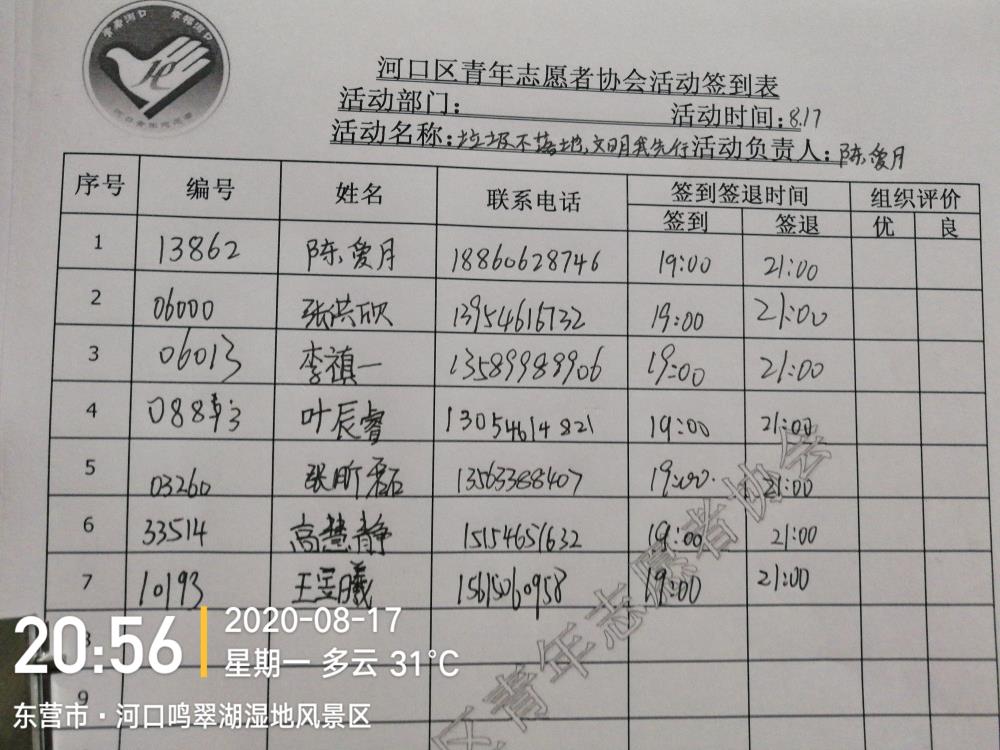 青春河口 幸福河口
河口区青年志愿者协会活动签到表
活动部门： 活动时间：8.17
活动名称：垃圾不落地,文明我先行 活动负责人：陈爱月
序号 编号 姓名 联系电话 签到签退时间 组织评价
签到 签退 优 良
1 13862 陈爱月 18860628746 19:00 21:00
2 06000 张洪欣 13954616732 19:00 21:00
3 06013 李禛一 13589989906 19:00 21:00
4 088 叶辰睿 13054614821 19:00 21:00
5 03260 张昕磊 13563368407 19:00 21:00
6 33514 高慧静 15154651632 19:00 21:00
7 10193 王昱曦 15615060958 19:00 21:00
8
9
区青年志愿者协会
20:56
2020-08-17
星期一 多云 31℃
东营市·河口鸣翠湖湿地风景区